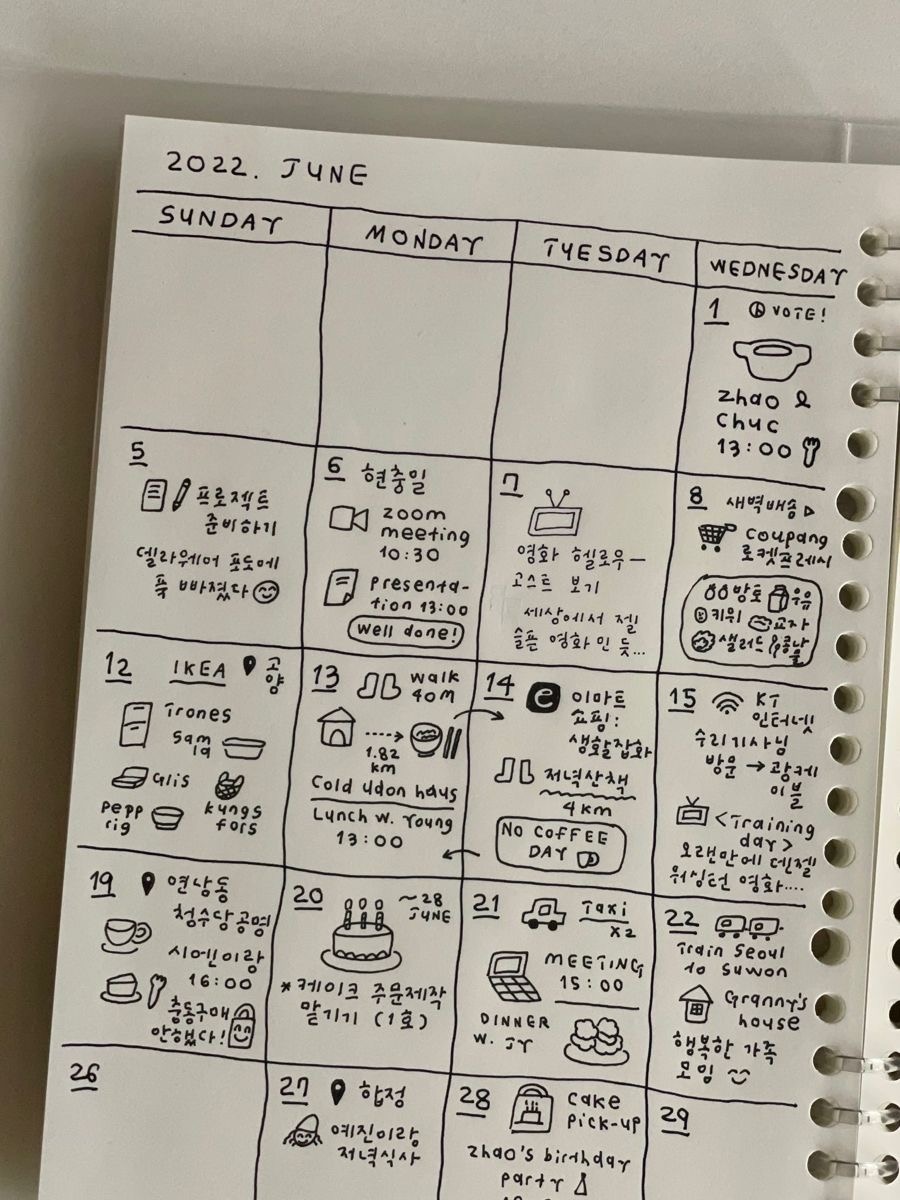 2022. JUNE
SUNDAY
MONDAY
TUESDAY
WEDNESDAY
1 VOTE!
zhao &
Chuc
13:00
5
프로젝트
준비하기
델라웨어 포도에
푹 빠졌다
6 현충일
zoom
meeting
10:30
presenta-
tion 13:00
Well done!
7
영화 헬로우—
고스트 보기
세상에서 젤
슬픈 영화인 듯...
8 새벽배송
coupang
로켓프레시
방토 우유
키위 교자
샐러드 콩나
물
12 IKEA 고
양
Trones
Sam
la
Glis
pepp
rig
kungs
fors
13 walk
40m
1.82
km
Cold udon haus
Lunch w. Young
13:00
14 e 이마트
쇼핑:
생활잡화
저녁산책
4km
NO COFFEE
DAY
15 KT
인터넷
수리기사님
방문 → 광케
이블
<Training
day>
오랜만에 덴젤
워싱턴 영화....
19 연남동
청수당공명
시엔이랑
16:00
충동구매
안했다!
20 ~28
JUNE
*케이크 주문제작
맡기기 (1호)
21 Taxi
x2
MEETING
15:00
DINNER
W. JY
22
Train Seoul
to Suwon
Granny's
house
행복한 가족
모임
26
27 합정
예진이랑
저녁식사
28 cake
pick-up
zhao's birthday
party
29